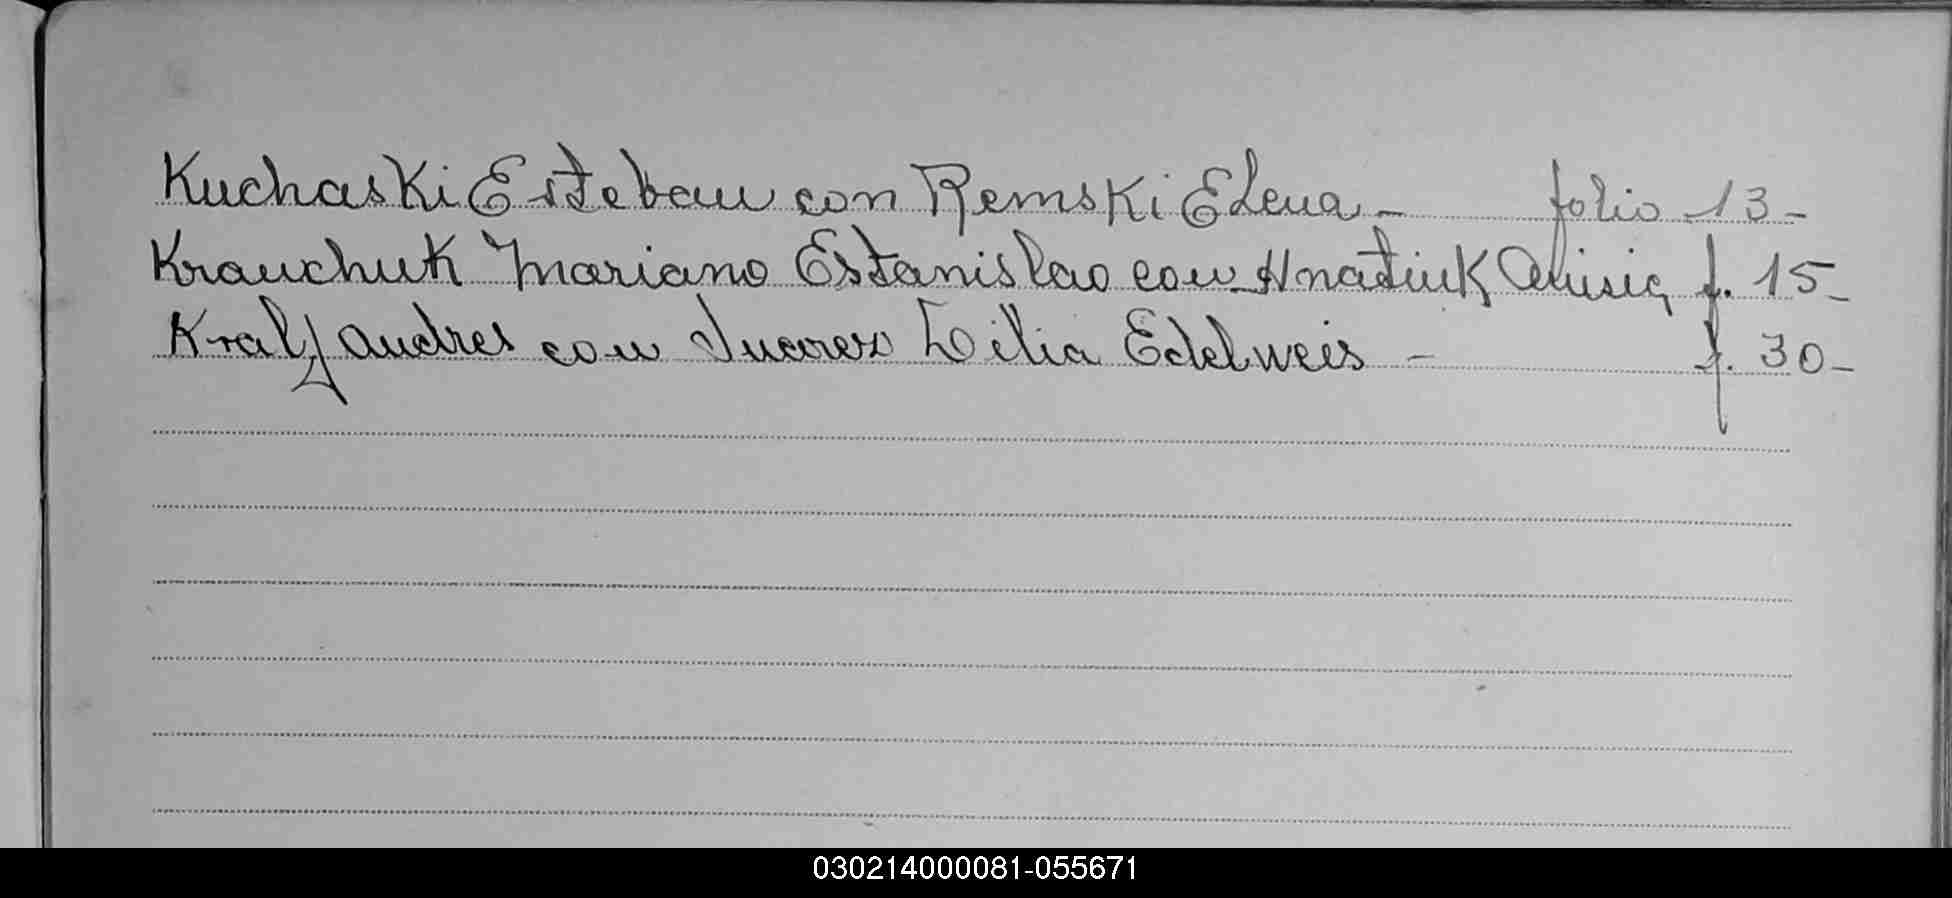 Kuchaski Esteban con Remski Elena - folio 13-
Krauchuk Mariano Estanislao con Hnatiuk f. 15-
Kralj Andres con Lilia Edelweis - f. 30-
030214000081-055671